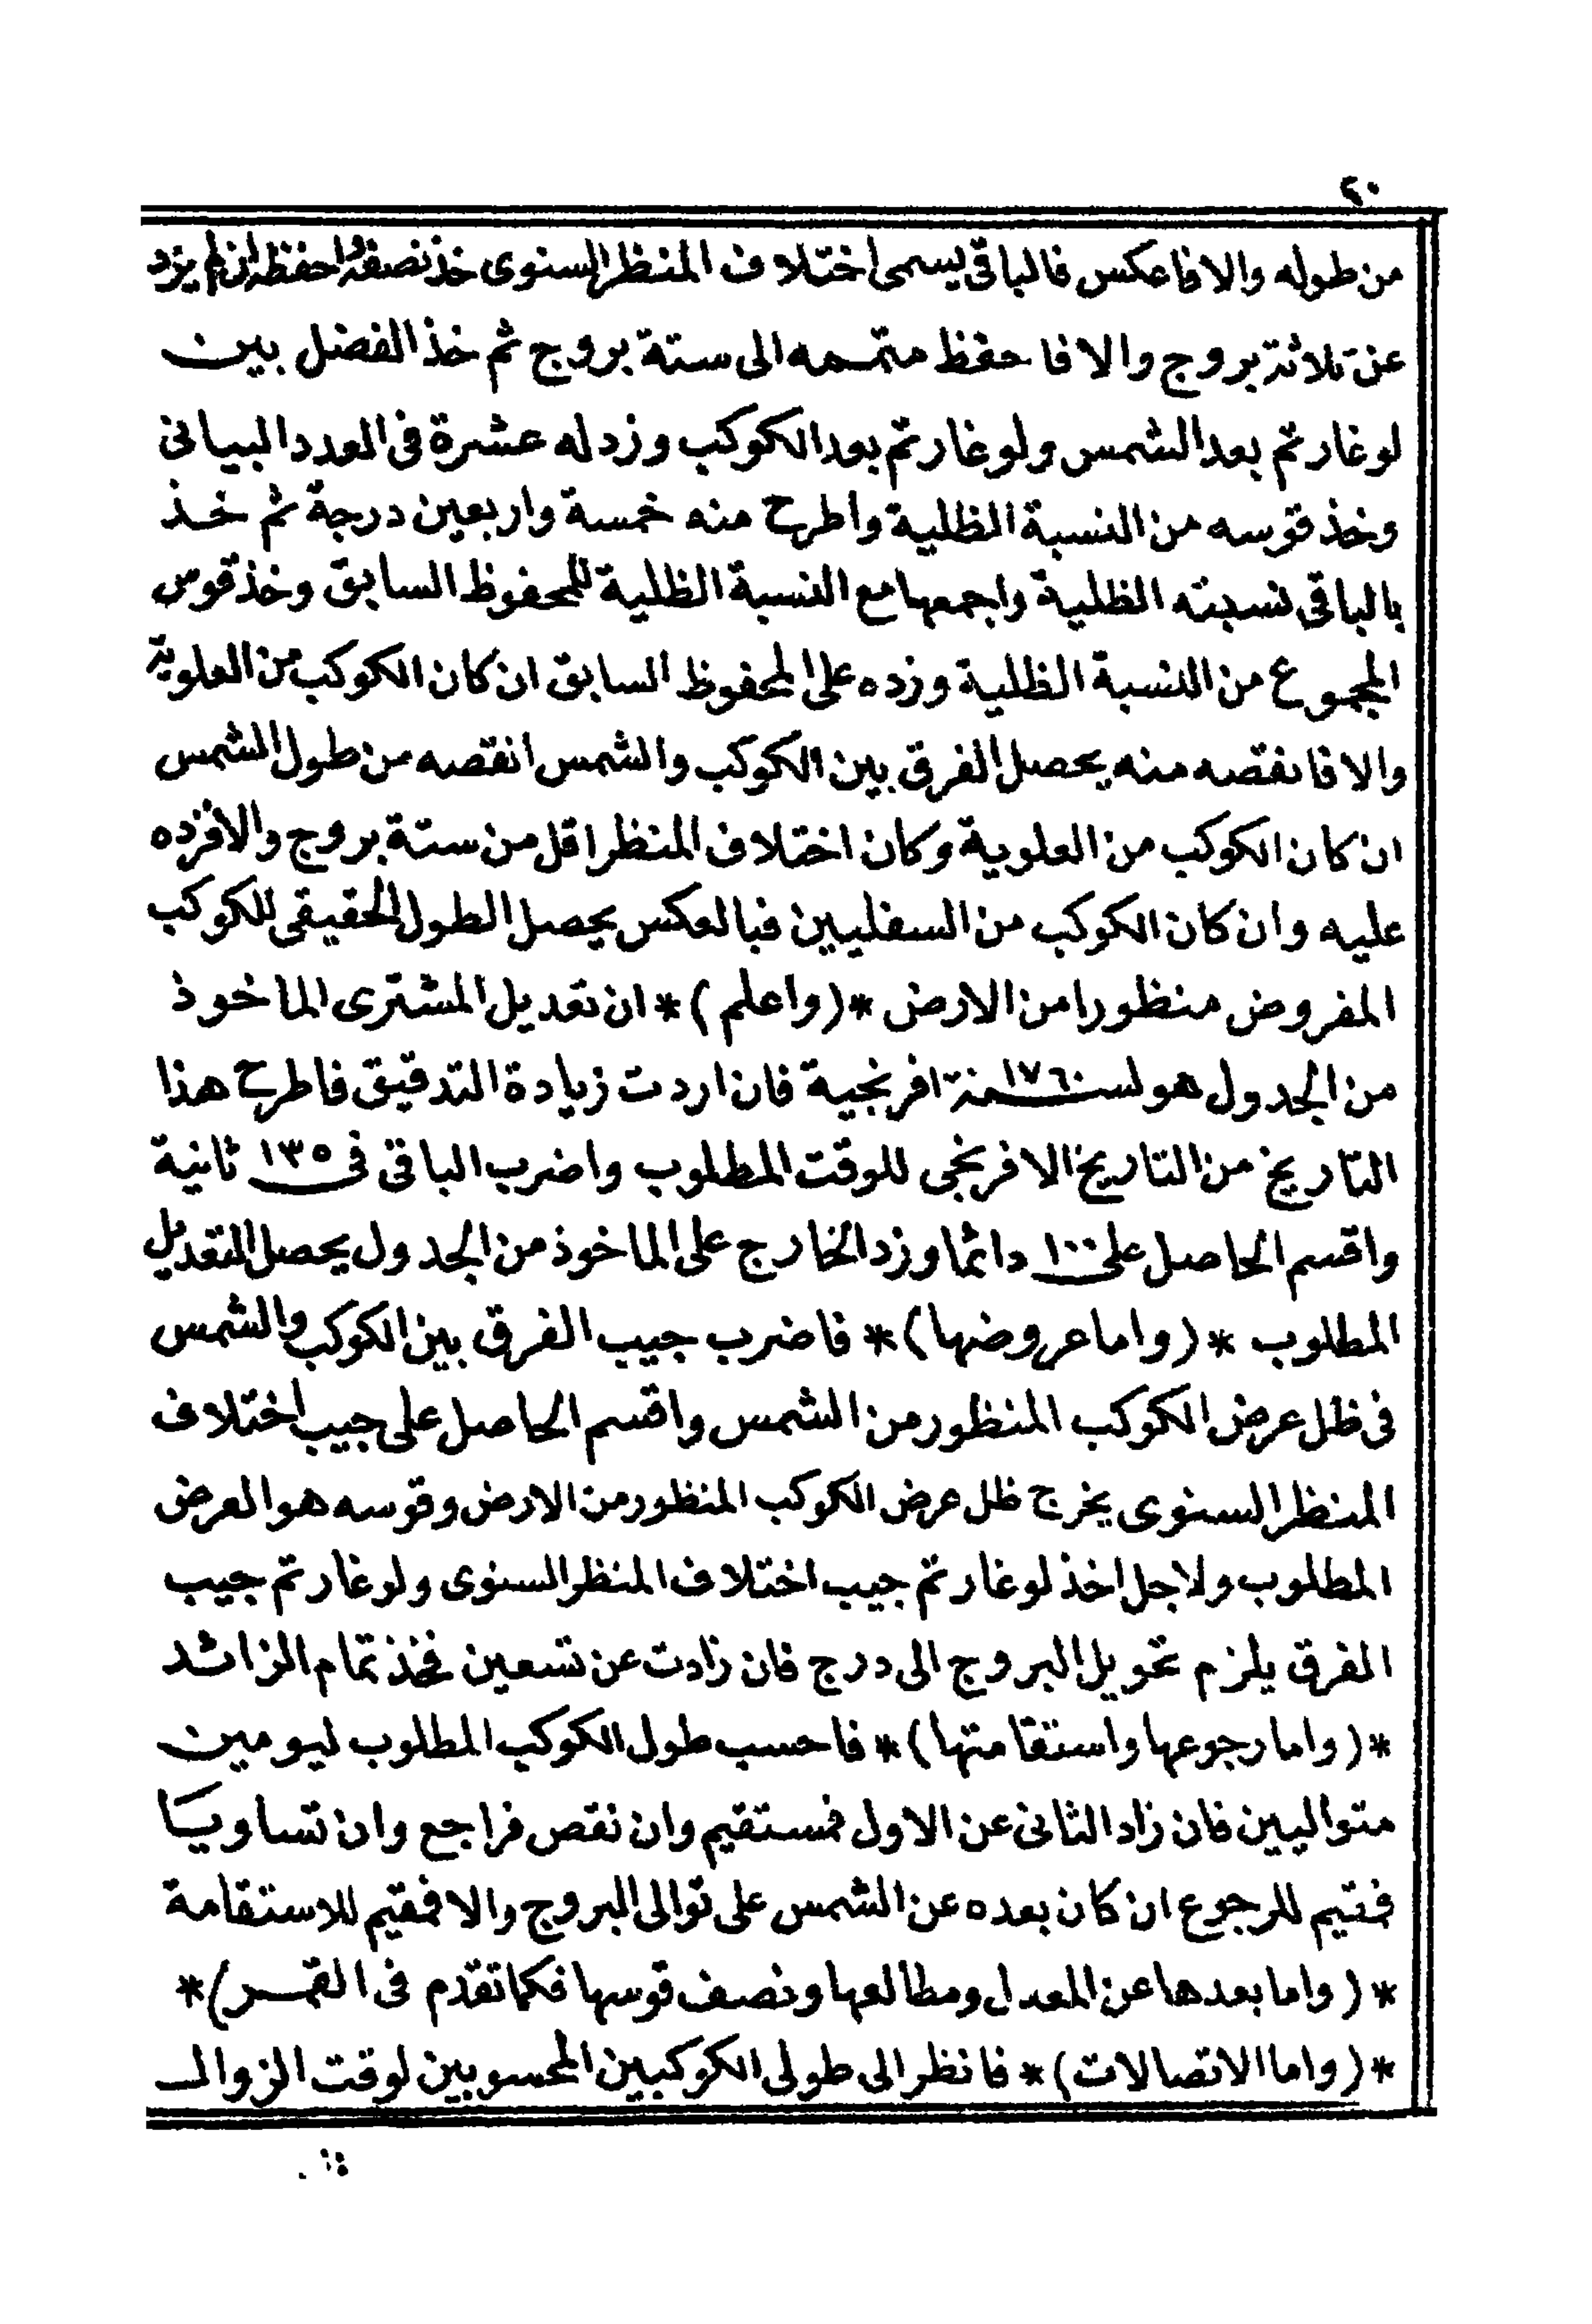 ٤٠
من طوله والا فاعكس فالباقى يسمى اختلاف المنظر السنوى خذ نصفه واحفظه ان لم يزد
عن ثلاثة بروج والا فاحفظ متممه الى ستة بروج ثم خذ الفضل بين
لوغارتم بعد الشمس ولوغارتم بعد الكوكب وزد له عشرة فى العدد البيانى
وخذ قوسه من النسبة الظلية واطرح منه خمسة واربعين درجة ثم خذ
بالباقى نسبته الظلية واجمعها مع النسبة الظلية للمحفوظ السابق وخذ قوس
المجموع من النسبة الظلية وزده على المحفوظ السابق ان كان الكوكب من العلوية
والا فانقصه منه يحصل الفرق بين الكوكب والشمس انقصه من طول الشمس
ان كان الكوكب من العلوية وكان اختلاف المنظر اقل من ستة بروج والا فزده
عليه وان كان الكوكب من السفليين فبالعكس يحصل الطول الحقيقى للكوكب
المفروض منظورا من الارض *(واعلم)* ان تعديل المشترى الماخوذ
من الجدول هو لسنة ١٧٦٠ افرنجية فان اردت زيادة التدقيق فاطرح هذا
التاريخ من التاريخ الافرنجى للوقت المطلوب واضرب الباقى فى ١٣٥ ثانية
واقسم الحاصل على ١٠٠ دائما وزد الخارج على الماخوذ من الجدول يحصل التعديل
المطلوب *(واما عروضها)* فاضرب جيب الفرق بين الكوكب والشمس
فى ظل عرض الكوكب المنظور من الشمس واقسم الحاصل على جيب اختلاف
المنظر السنوى يخرج ظل عرض الكوكب المنظور من الارض وقوسه هو العرض
المطلوب ولاجل اخذ لوغارتم جيب اختلاف المنظر السنوى ولوغارتم جيب
الفرق يلزم تحويل البروج الى درج فان زادت عن تسعين فخذ تمام الزائد
*(واما رجوعها واستقامتها)* فاحسب طول الكوكب المطلوب ليومين
متواليين فان زاد الثانى عن الاول فمستقيم وان نقص فراجع وان تساويا
فمقيم للرجوع ان كان بعده عن الشمس على توالى البروج والا فمقيم للاستقامة
*(واما بعدها عن المعدل ومطالعها ونصف قوسها فكما تقدم فى القمر)*
*(واما الاتصالات)* فانظر الى طولى الكوكبين المحسوبين لوقت الزوال